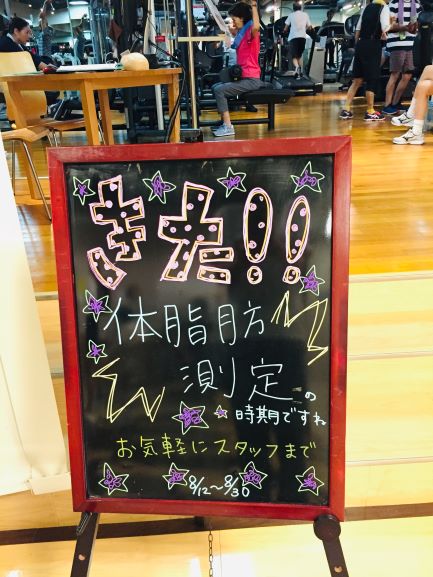 きた!!
体脂肪
測定の
時期ですね
お気軽にスタッフまで
8/12〜8/30